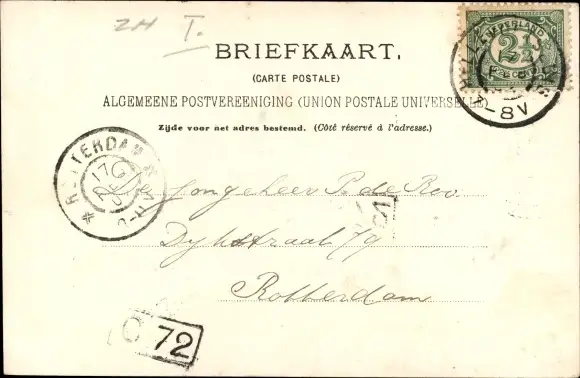 ZH I.
BRIEFKAART.
(CARTE POSTALE)
ALGEMEENE POSTVEREENIGING (UNION POSTALE UNIVERSELLE)
Zijde voor net adres bestemd. (Côté réservé à l'adresse.)
NEDERLAND
2½
8V
ROTTERDAM
Den Jongeheer P. de Roo
Dijkstraat 79
Rotterdam
C 72